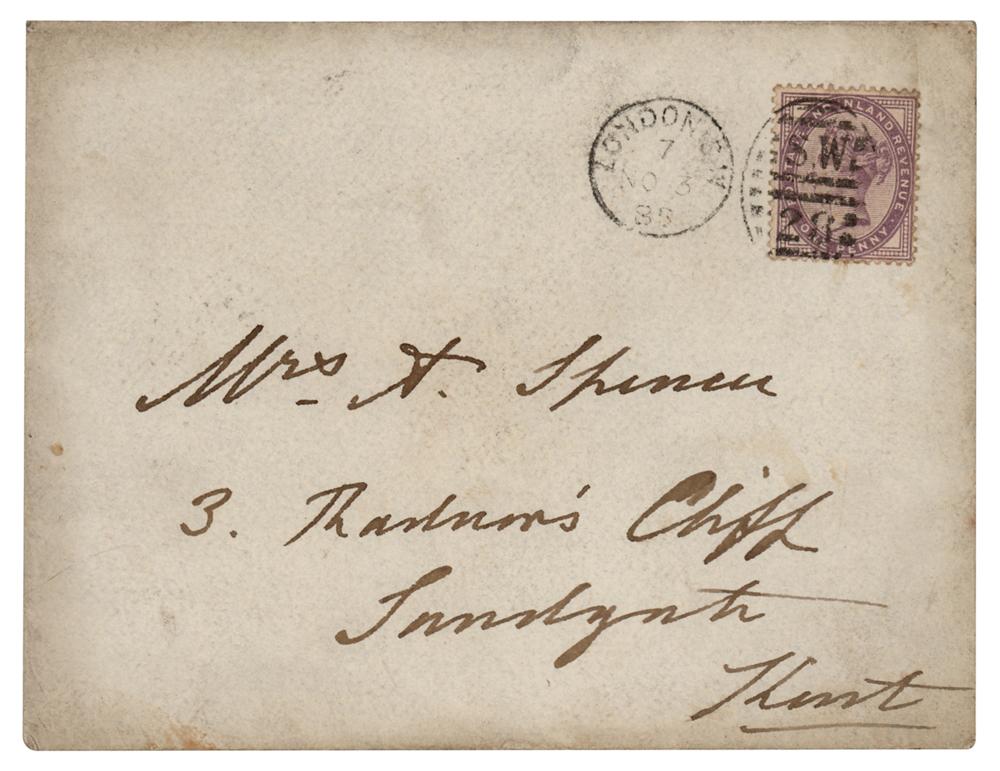 LONDON S.W
7
NO 3
85
POSTAGE AND INLAND REVENUE
ONE PENNY
S.W
26
Mrs A. Spencer
3. Radnor's Cliff
Sandgate
Kent